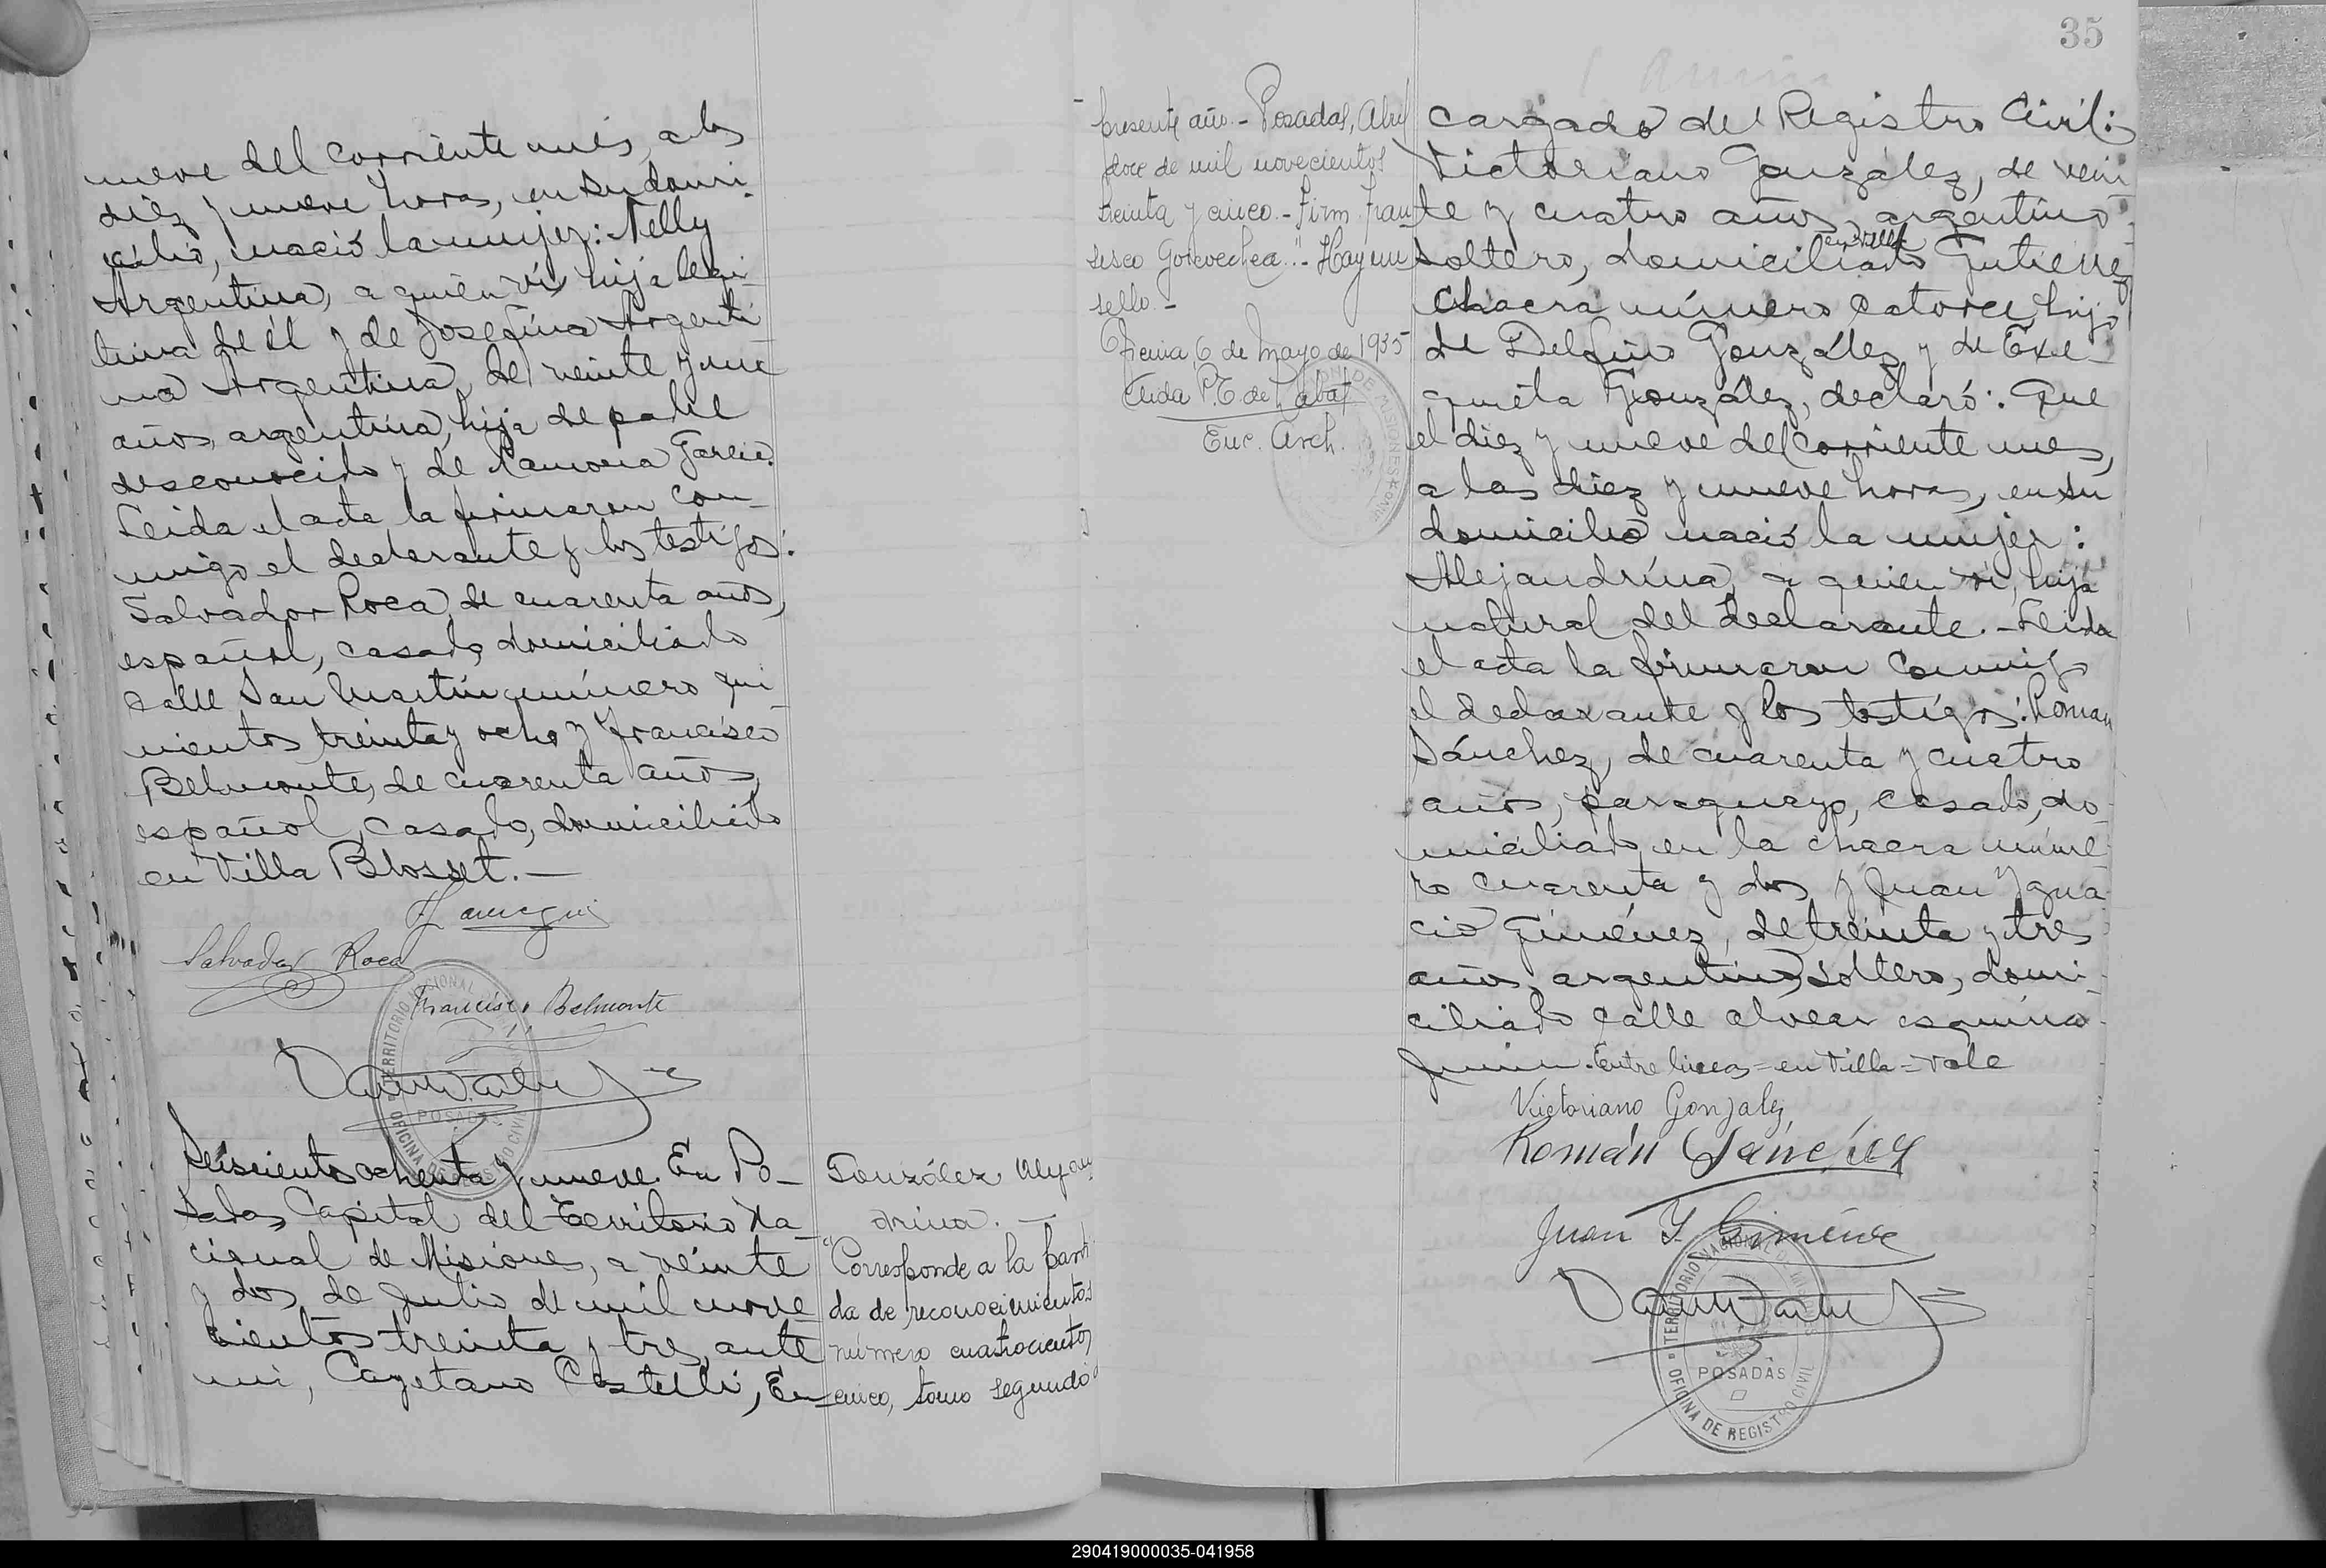 nueve del corriente mes, a las
diez y nueve horas, en su domi-
cilio, nació la mujer: Nelly
Argentina, a quien vi, hija legi-
tima de él y de Josefina Argenti
na Argentina, de veinte y
años, argentina, hija de padre
desconocido y de Ramona Garcia.
Leida el acta la firmaron con-
migo el declarante y los testigos:
Salvador Roca, de cuarenta años,
español, casado, domiciliado
calle San Martín número qui
nientos treinta y ocho y Francisco
Belmonte, de cuarenta años,
español, casado, domiciliado
en Villa Blosset.—
Salvador Roca
Francisco Belmonte
TERRITORIO NACIONAL
POSADAS
OFICINA DE REGISTRO CIVIL
Seiscientos ochenta y nueve. En Po-
sadas, Capital del Territorio Na-
cional de Misiones, a veinte
y dos de Julio de mil nove-
cientos treinta y tres, ante
mi, Cayetano Castelli, En-
González Alejan
drina.—
"Corresponde a la parti
da de reconocimientos
número cuatrocientos
cinco, tomo segundo
35
presente año.- Posadas, Abril
doce de mil novecientos
treinta y cinco.- Firm. Fran-
cisco Goicoechea".- Hay un
sello.-
Oficina 6 de Mayo de 1935
P. E. de
Enc. Arch.
DE MISIONES
cargado del Registro Civil:
Victoriano González, de vein
te y cuatro años, argentino,
en Villa
soltero, domiciliado Gutierrez
chacra número catorce, hijo
de Delfino González y de Exe-
quiela González, declaró: Que
el diez y nueve del corriente mes,
a las diez y nueve horas, en su
domicilio nació la mujer:
Alejandrina, a quien vi, hija
natural del declarante.- Leida
el acta la firmaron conmigo
el declarante y los testigos: Roman
Sánchez, de cuarenta y cuatro
años, paraguayo, casado, do-
miciliado en la chacra núme-
ro cuarenta y dos y Juan Ygna-
cio Giménez, de treinta y tres
años, argentino, soltero, domi-
ciliado calle alvear esquina
Junin.- Entre lineas = en Villa = Vale
Victoriano Gonzalez
Román Sánchez
Juan Y. Giménez
TERRITORIO NACIONAL DE MISIONES
POSADAS
OFICINA DE REGISTRO CIVIL
290419000035-041958